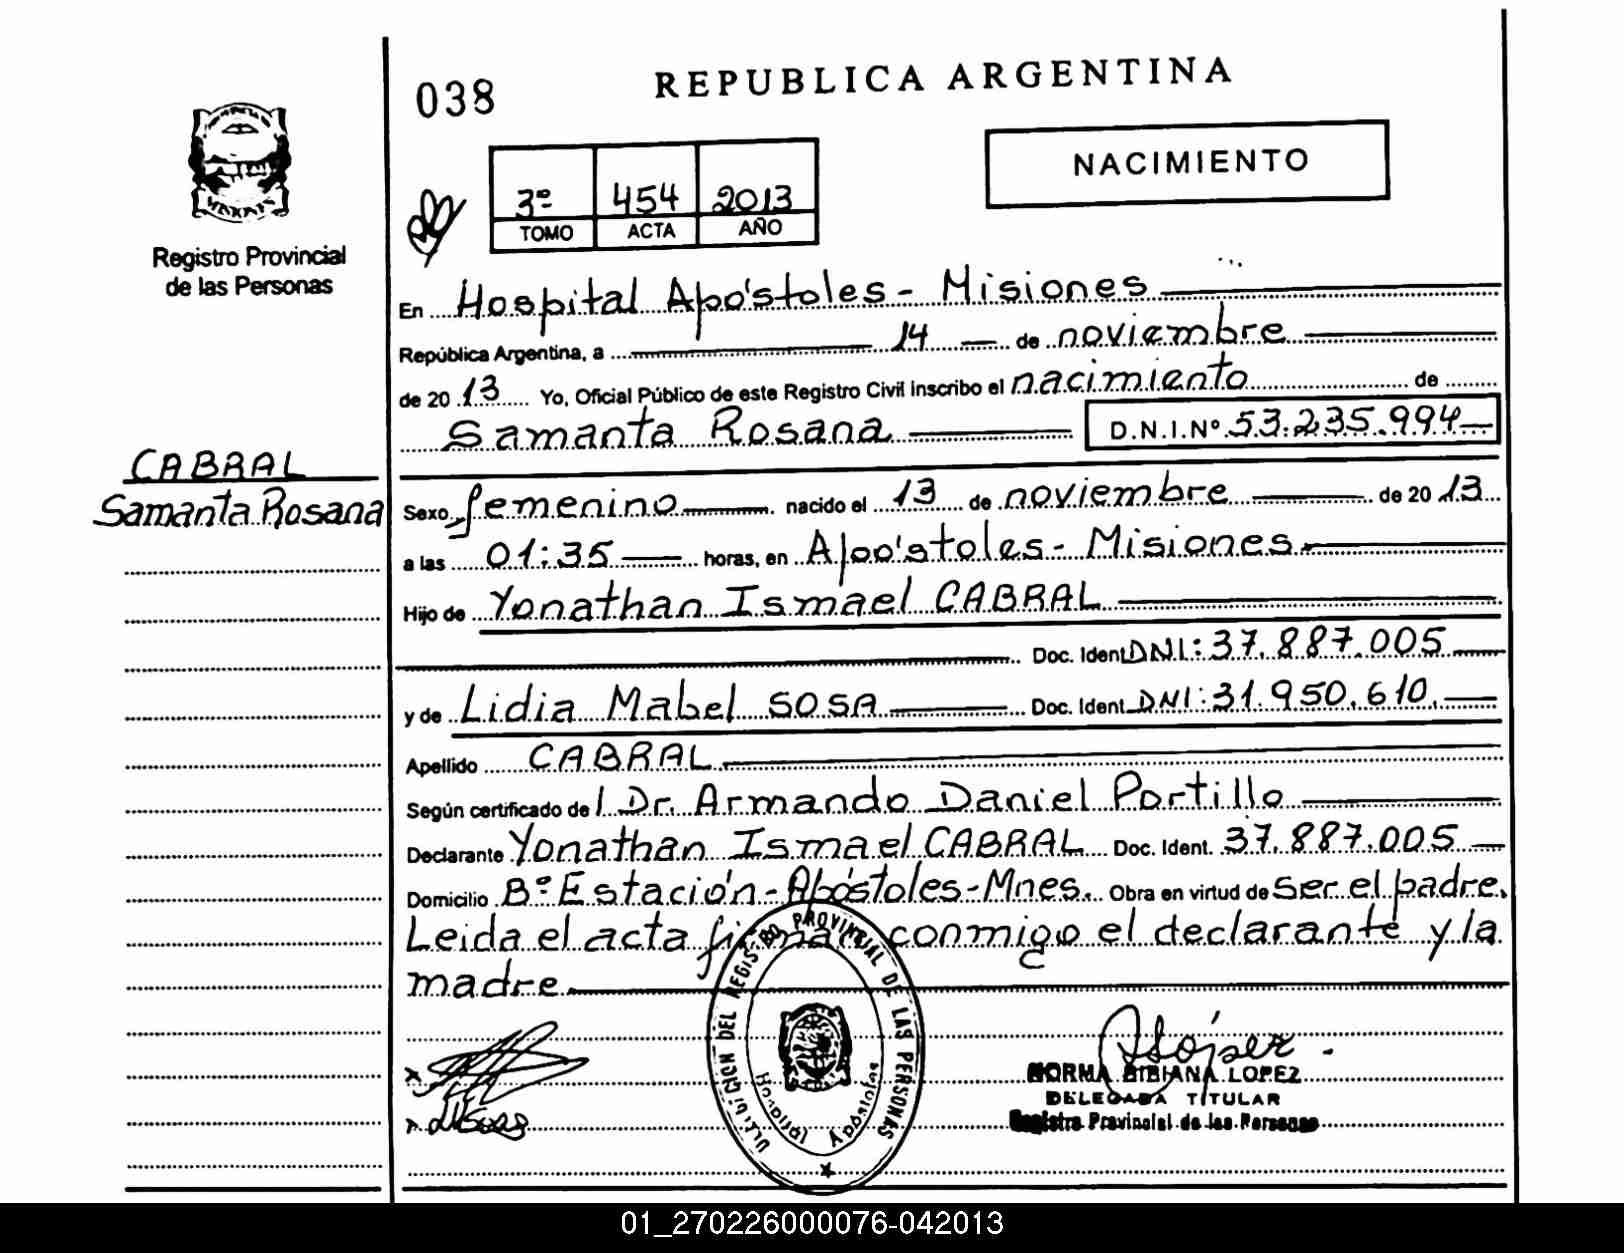 038
REPUBLICA ARGENTINA
NACIMIENTO
3º 454 2013
TOMO ACTA AÑO
MISIONES
Registro Provincial
de las Personas
CABRAL
Samanta Rosana
En Hospital Apóstoles - Misiones
República Argentina, a 14 de noviembre
de 2013 Yo, Oficial Público de este Registro Civil inscribo el nacimiento de
Samanta Rosana D.N.I.Nº 53.235.994
Sexo femenino nacido el 13 de noviembre de 2013
a las 01:35 horas, en Apóstoles - Misiones
Hijo de Yonathan Ismael CABRAL
Doc. Ident DNI: 37.887.005
y de Lidia Mabel SOSA Doc. Ident DNI: 31.950.610.
Apellido CABRAL
Según certificado de l Dr. Armando Daniel Portillo
Declarante Yonathan Ismael CABRAL Doc. Ident. 37.887.005
Domicilio Bº Estación - Apóstoles - Mnes. Obra en virtud de Ser el padre.
Leida el acta conmigo el declarante y la
madre
DEL REGISTRO PROVINCIAL DE LAS PERSONAS
Hospital Apóstoles
NORMA BIBIANA LOPEZ
DELEGADA TITULAR
Registro Provincial de las Personas
01_270226000076-042013